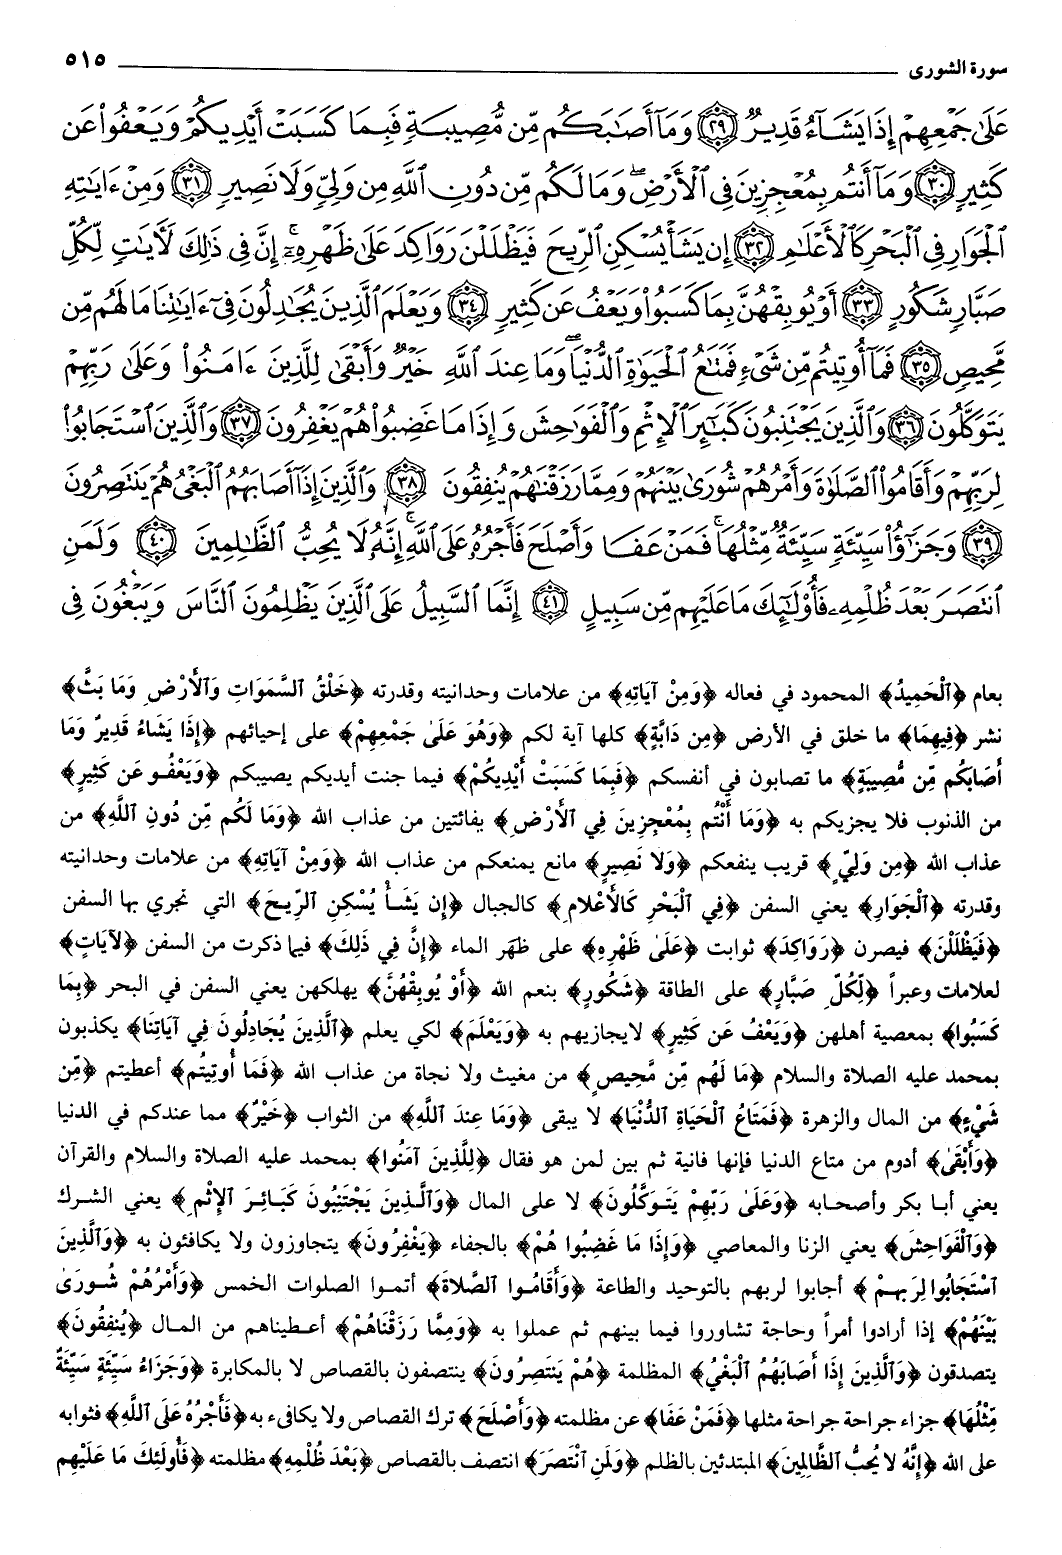 سورة الشورى ٥١٥
عَلَىٰ جَمْعِهِمْ إِذَا يَشَآءُ قَدِيرٌ ﴿٢٩﴾ وَمَآ أَصَٰبَكُم مِّن مُّصِيبَةٍ فَبِمَا كَسَبَتْ أَيْدِيكُمْ وَيَعْفُوا۟ عَن
كَثِيرٍ ﴿٣٠﴾ وَمَآ أَنتُم بِمُعْجِزِينَ فِى ٱلْأَرْضِ ۖ وَمَا لَكُم مِّن دُونِ ٱللَّهِ مِن وَلِىٍّ وَلَا نَصِيرٍ ﴿٣١﴾ وَمِنْ ءَايَٰتِهِ
ٱلْجَوَارِ فِى ٱلْبَحْرِ كَٱلْأَعْلَٰمِ ﴿٣٢﴾ إِن يَشَأْ يُسْكِنِ ٱلرِّيحَ فَيَظْلَلْنَ رَوَاكِدَ عَلَىٰ ظَهْرِهِۦٓ ۚ إِنَّ فِى ذَٰلِكَ لَءَايَٰتٍ لِّكُلِّ
صَبَّارٍ شَكُورٍ ﴿٣٣﴾ أَوْ يُوبِقْهُنَّ بِمَا كَسَبُوا۟ وَيَعْفُ عَن كَثِيرٍ ﴿٣٤﴾ وَيَعْلَمَ ٱلَّذِينَ يُجَٰدِلُونَ فِىٓ ءَايَٰتِنَا مَا لَهُم مِّن
مَّحِيصٍ ﴿٣٥﴾ فَمَآ أُوتِيتُم مِّن شَىْءٍ فَمَتَٰعُ ٱلْحَيَوٰةِ ٱلدُّنْيَا ۖ وَمَا عِندَ ٱللَّهِ خَيْرٌ وَأَبْقَىٰ لِلَّذِينَ ءَامَنُوا۟ وَعَلَىٰ رَبِّهِمْ
يَتَوَكَّلُونَ ﴿٣٦﴾ وَٱلَّذِينَ يَجْتَنِبُونَ كَبَٰٓئِرَ ٱلْإِثْمِ وَٱلْفَوَٰحِشَ وَإِذَا مَا غَضِبُوا۟ هُمْ يَغْفِرُونَ ﴿٣٧﴾ وَٱلَّذِينَ ٱسْتَجَابُوا۟
لِرَبِّهِمْ وَأَقَامُوا۟ ٱلصَّلَوٰةَ وَأَمْرُهُمْ شُورَىٰ بَيْنَهُمْ وَمِمَّا رَزَقْنَٰهُمْ يُنفِقُونَ ﴿٣٨﴾ وَٱلَّذِينَ إِذَآ أَصَابَهُمُ ٱلْبَغْىُ هُمْ يَنتَصِرُونَ
﴿٣٩﴾ وَجَزَٰٓؤُا۟ سَيِّئَةٍ سَيِّئَةٌ مِّثْلُهَا ۖ فَمَنْ عَفَا وَأَصْلَحَ فَأَجْرُهُۥ عَلَى ٱللَّهِ ۚ إِنَّهُۥ لَا يُحِبُّ ٱلظَّٰلِمِينَ ﴿٤٠﴾ وَلَمَنِ
ٱنتَصَرَ بَعْدَ ظُلْمِهِۦ فَأُو۟لَٰٓئِكَ مَا عَلَيْهِم مِّن سَبِيلٍ ﴿٤١﴾ إِنَّمَا ٱلسَّبِيلُ عَلَى ٱلَّذِينَ يَظْلِمُونَ ٱلنَّاسَ وَيَبْغُونَ فِى
بعام ﴿ٱلْحَمِيدُ﴾ المحمود في فعاله ﴿وَمِنْ آيَاتِهِ﴾ من علامات وحدانيته وقدرته ﴿خَلْقُ ٱلسَّمَوَاتِ وَٱلْأَرْضِ وَمَا بَثَّ﴾
نشر ﴿فِيهِمَا﴾ ما خلق في الأرض ﴿مِن دَابَّةٍ﴾ كلها آية لكم ﴿وَهُوَ عَلَىٰ جَمْعِهِمْ﴾ على إحيائهم ﴿إِذَا يَشَاءُ قَدِيرٌ وَمَا
أَصَابَكُم مِّن مُّصِيبَةٍ﴾ ما تصابون في أنفسكم ﴿فَبِمَا كَسَبَتْ أَيْدِيكُمْ﴾ فيما جنت أيديكم يصيبكم ﴿وَيَعْفُو عَن كَثِيرٍ﴾
من الذنوب فلا يجزيكم به ﴿وَمَا أَنْتُم بِمُعْجِزِينَ فِي ٱلْأَرْضِ﴾ بفائتين من عذاب الله ﴿وَمَا لَكُم مِّن دُونِ ٱللَّهِ﴾ من
عذاب الله ﴿مِن وَلِيٍّ﴾ قريب ينفعكم ﴿وَلَا نَصِيرٍ﴾ مانع يمنعكم من عذاب الله ﴿وَمِنْ آيَاتِهِ﴾ من علامات وحدانيته
وقدرته ﴿ٱلْجَوَارِ﴾ يعني السفن ﴿فِي ٱلْبَحْرِ كَالأَعْلامِ﴾ كالجبال ﴿إِن يَشَأْ يُسْكِنِ ٱلرِّيحَ﴾ التي تجري بها السفن
﴿فَيَظْلَلْنَ﴾ فيصرن ﴿رَوَاكِدَ﴾ ثوابت ﴿عَلَىٰ ظَهْرِهِ﴾ على ظهر الماء ﴿إِنَّ فِي ذَلِكَ﴾ فيما ذكرت من السفن ﴿لآيَاتٍ﴾
لعلامات وعبراً ﴿لِّكُلِّ صَبَّارٍ﴾ على الطاقة ﴿شَكُورٍ﴾ بنعم الله ﴿أَوْ يُوبِقْهُنَّ﴾ يهلكهن يعني السفن في البحر ﴿بِمَا
كَسَبُوا﴾ بمعصية أهلهن ﴿وَيَعْفُ عَن كَثِيرٍ﴾ لايجازيهم به ﴿وَيَعْلَمَ﴾ لكي يعلم ﴿ٱلَّذِينَ يُجَادِلُونَ فِي آيَاتِنَا﴾ يكذبون
بمحمد عليه الصلاة والسلام ﴿مَا لَهُم مِّن مَّحِيصٍ﴾ من مغيث ولا نجاة من عذاب الله ﴿فَمَا أُوتِيتُم﴾ أعطيتم ﴿مِّن
شَيْءٍ﴾ من المال والزهرة ﴿فَمَتَاعُ ٱلْحَيَاةِ ٱلدُّنْيَا﴾ لا يبقى ﴿وَمَا عِندَ ٱللَّهِ﴾ من الثواب ﴿خَيْرٌ﴾ مما عندكم في الدنيا
﴿وَأَبْقَىٰ﴾ أدوم من متاع الدنيا فإنها فانية ثم بين لمن هو فقال ﴿لِلَّذِينَ آمَنُوا﴾ بمحمد عليه الصلاة والسلام والقرآن
يعني أبا بكر وأصحابه ﴿وَعَلَىٰ رَبِّهِمْ يَتَوَكَّلُونَ﴾ لا على المال ﴿وَٱلَّذِينَ يَجْتَنِبُونَ كَبَائِرَ ٱلإِثْمِ﴾ يعني الشرك
﴿وَٱلْفَوَاحِشَ﴾ يعني الزنا والمعاصي ﴿وَإِذَا مَا غَضِبُوا هُمْ﴾ بالجفاء ﴿يَغْفِرُونَ﴾ يتجاوزون ولا يكافئون به ﴿وَٱلَّذِينَ
ٱسْتَجَابُوا لِرَبِهِمْ﴾ أجابوا لربهم بالتوحيد والطاعة ﴿وَأَقَامُوا ٱلصَّلاةَ﴾ أتموا الصلوات الخمس ﴿وَأَمْرُهُمْ شُورَىٰ
بَيْنَهُمْ﴾ إذا أرادوا أمراً وحاجة تشاوروا فيما بينهم ثم عملوا به ﴿وَمِمَّا رَزَقْنَاهُمْ﴾ أعطيناهم من المال ﴿يُنفِقُونَ﴾
يتصدقون ﴿وَٱلَّذِينَ إِذَا أَصَابَهُمُ ٱلْبَغْيُ﴾ المظلمة ﴿هُمْ يَنتَصِرُونَ﴾ ينتصفون بالقصاص لا بالمكابرة ﴿وَجَزَاءُ سَيِّئَةٍ سَيِّئَةٌ
مِّثْلُهَا﴾ جزاء جراحة جراحة مثلها ﴿فَمَنْ عَفَا﴾ عن مظلمته ﴿وَأَصْلَحَ﴾ ترك القصاص ولا يكافىء به ﴿فَأَجْرُهُ عَلَى ٱللَّهِ﴾ فثوابه
على الله ﴿إِنَّهُ لا يُحِبُّ ٱلظَّالِمِينَ﴾ المبتدئين بالظلم ﴿وَلَمَنِ ٱنْتَصَرَ﴾ انتصف بالقصاص ﴿بَعْدَ ظُلْمِهِ﴾ مظلمته ﴿فَأُولَئِكَ مَا عَلَيْهِم